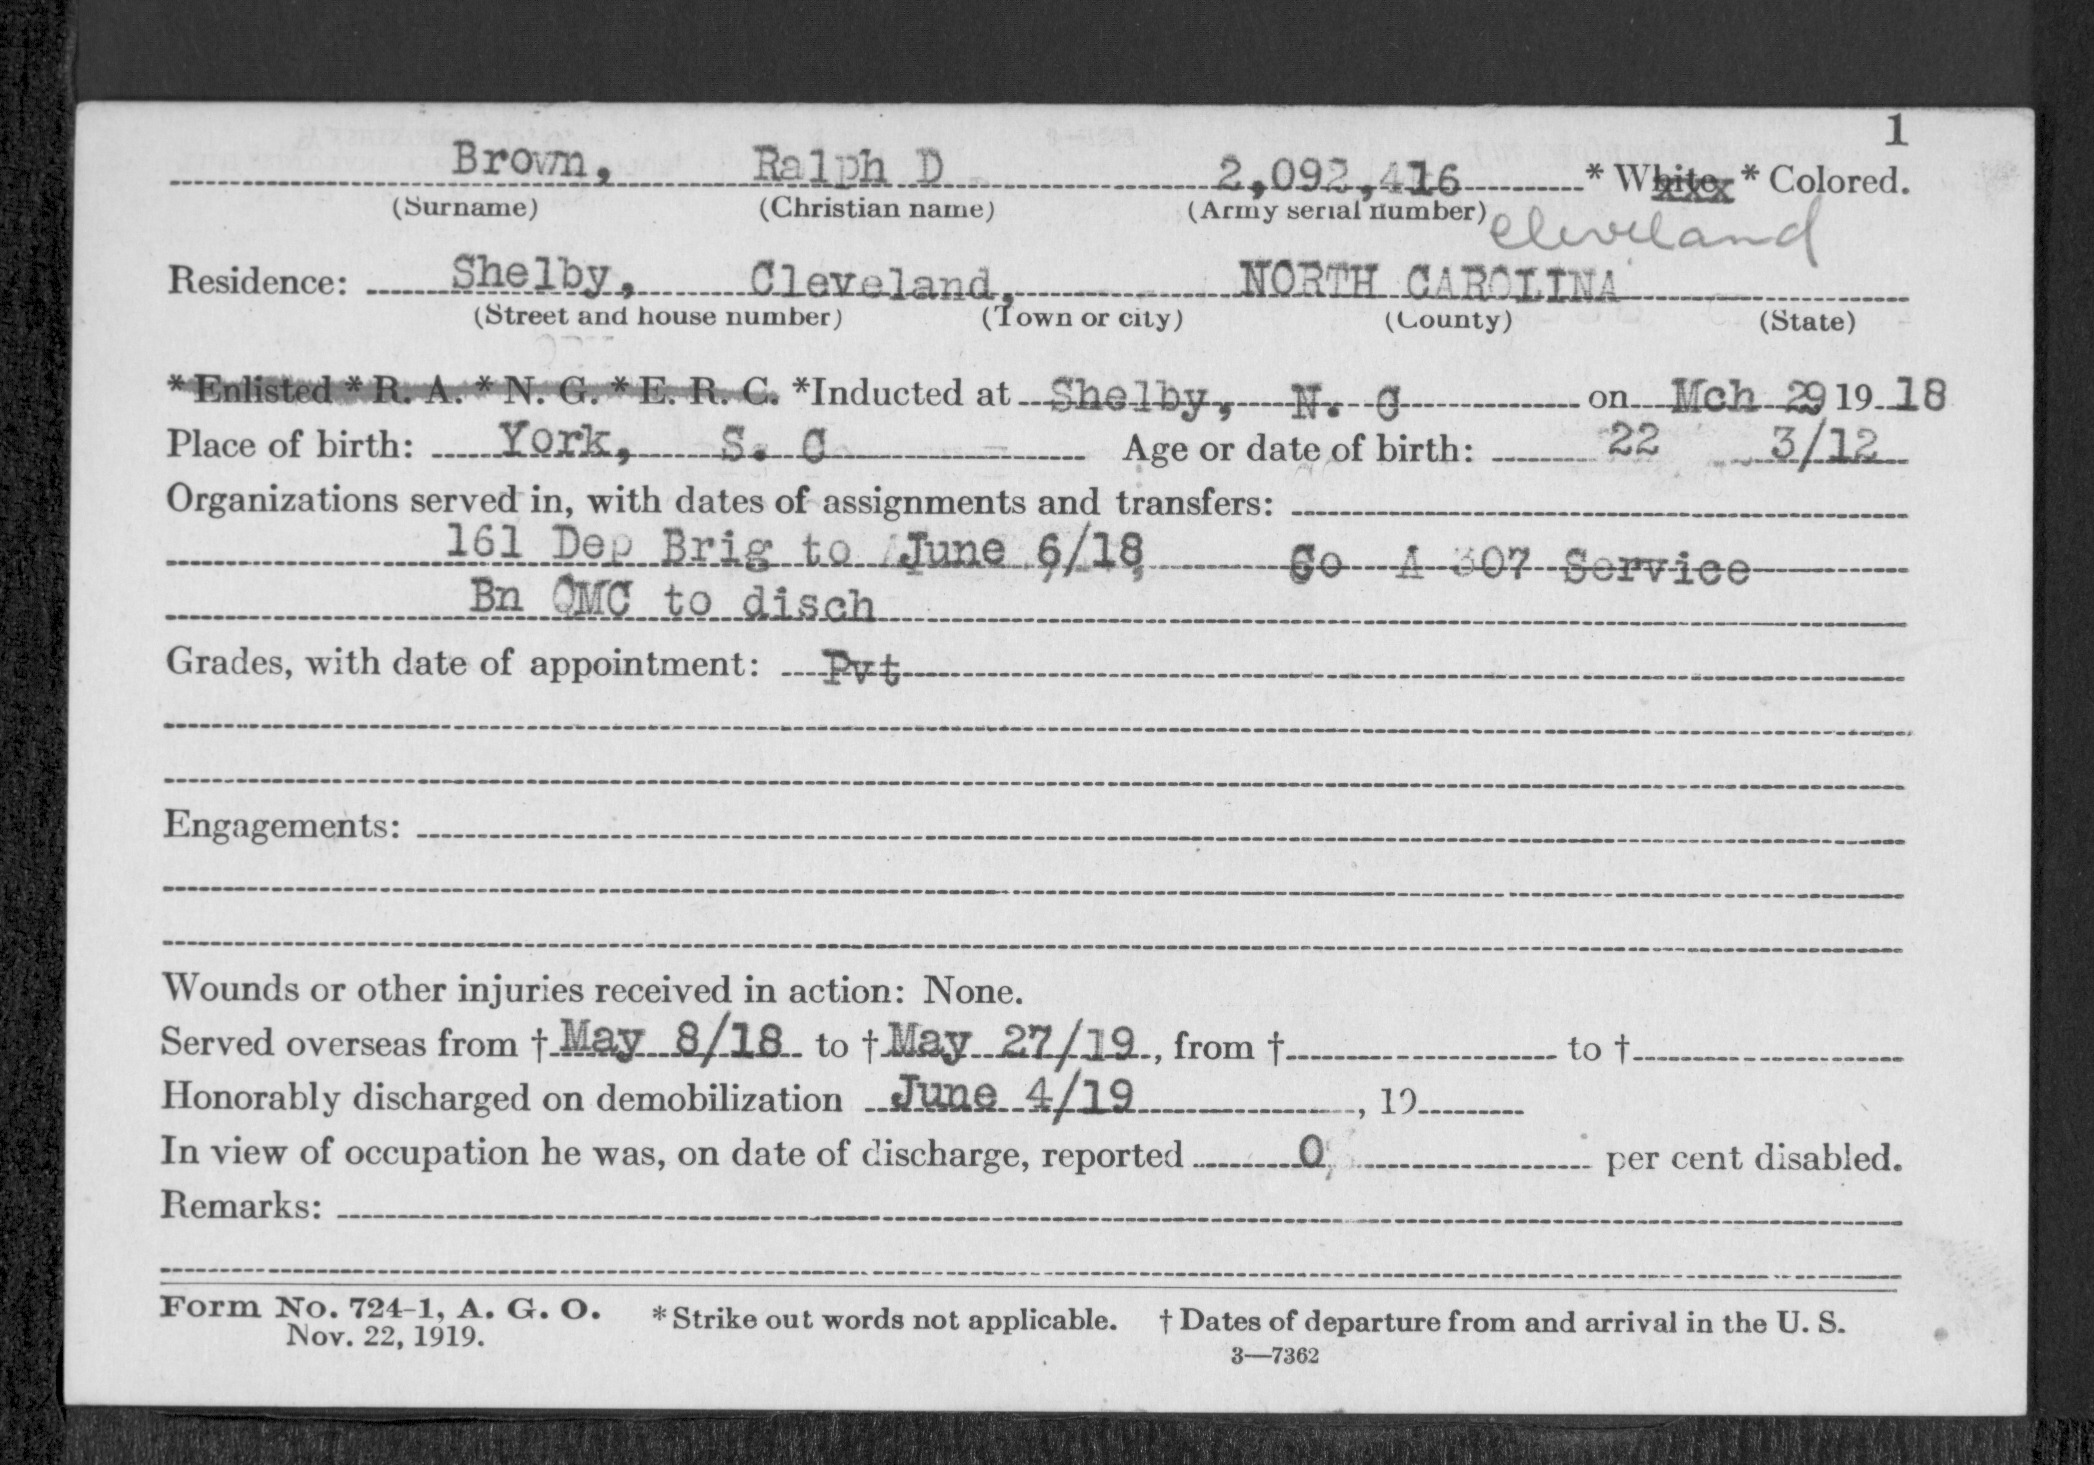 1
Brown, Ralph D 2,092,416 * White * Colored.
(Surname) (Christian name) (Army serial number)
Cleveland
Residence: Shelby, Cleveland, NORTH CAROLINA
(Street and house number) (Town or city) (County) (State)
* Enlisted * R. A. * N. G. * E. R. C. *Inducted at Shelby, N. C on Mch 29 19 18
Place of birth: York, S. C Age or date of birth: 22 3/12
Organizations served in, with dates of assignments and transfers:
161 Dep Brig to June 6/18, Co A 307 Service
Bn QMC to disch
Grades, with date of appointment: Pvt
Engagements:
Wounds or other injuries received in action: None.
Served overseas from † May 8/18 to † May 27/19, from † to †
Honorably discharged on demobilization June 4/19, 19
In view of occupation he was, on date of discharge, reported 0 per cent disabled.
Remarks:
Form No. 724-1, A. G. O. * Strike out words not applicable. † Dates of departure from and arrival in the U. S.
Nov. 22, 1919.
3—7362